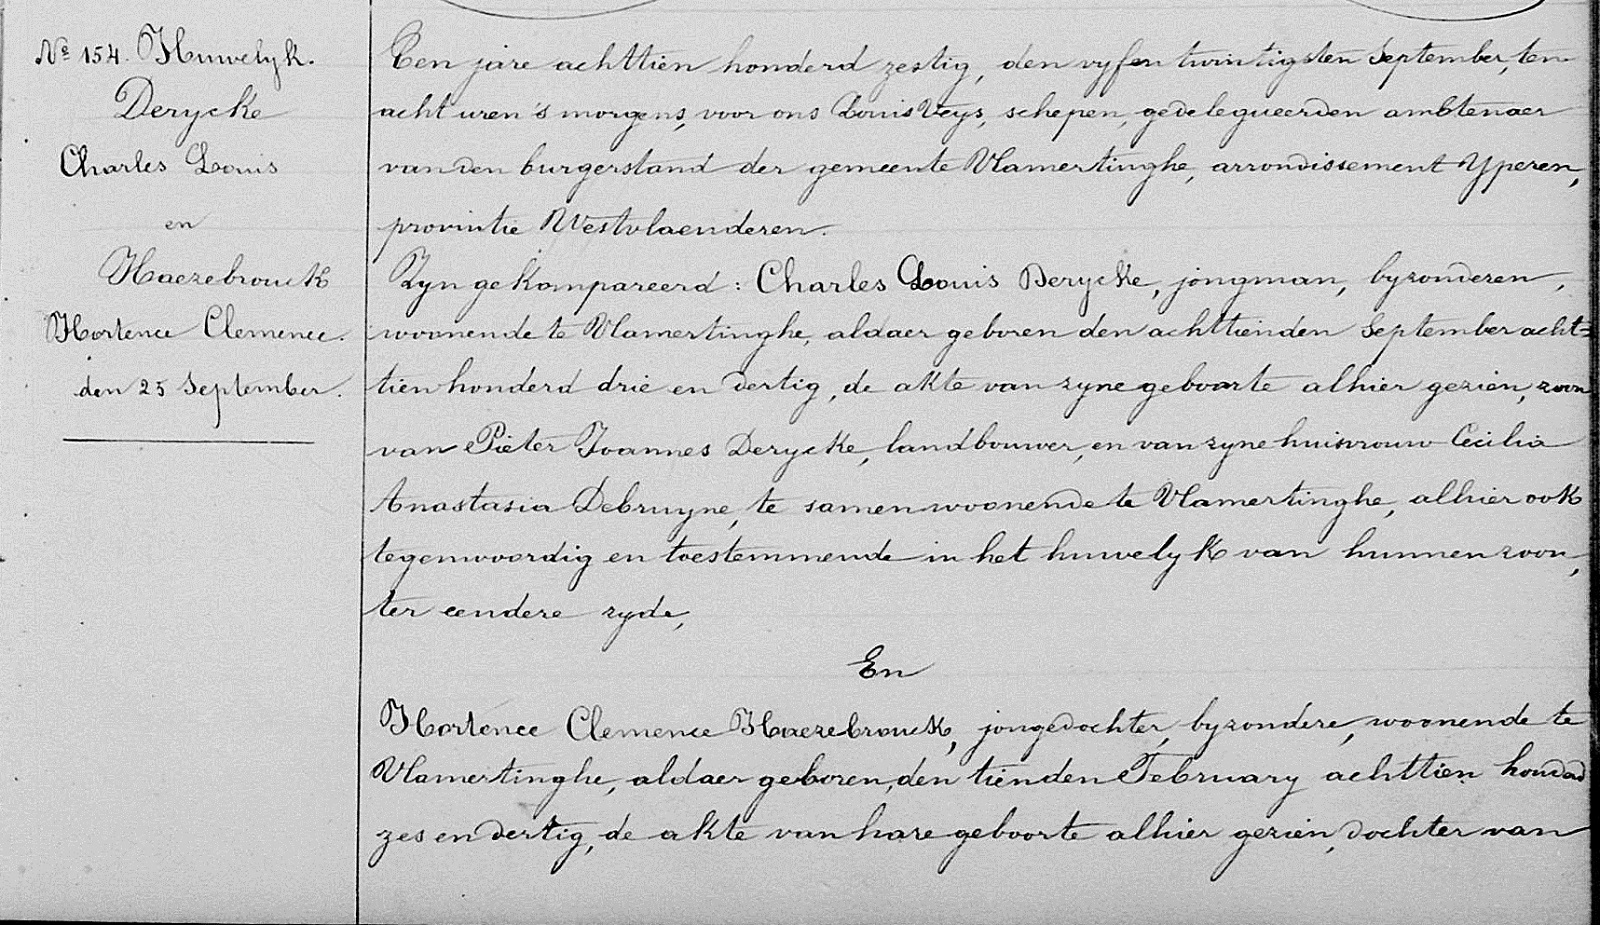 No 154. Huwelyk.
Derycke
Charles Louis
en
Haezebrouck
Hortence Clemence.
den 25 September.
Een jare achttien honderd zestig, den vyfentwintigsten September, ten
acht uren 's morgens, voor ons Louis Veys, schepen, gedelegueerden ambtenaer
van den burgerstand der gemeente Vlamertinghe, arrondissement Yperen,
provintie Westvlaenderen.
Zyn gekompareerd: Charles Louis Derycke, jongman, byzonderen,
woonende te Vlamertinghe, aldaer geboren den achttienden September acht=
tien honderd drie en dertig, de akte van zyne geboorte alhier gezien, zoon
van Pieter Joannes Derycke, landbouwer, en van zyne huisvrouw Cecilia
Anastasia Debruyne, te samen woonende te Vlamertinghe, alhier ook
tegenwoordig en toestemmende in het huwelyk van hunnen zoon,
ter eendere zyde,
En
Hortence Clemence Haezebrouck, jongedochter, byzondere, woonende te
Vlamertinghe, aldaer geboren, den tienden February achttien honderd
zes en dertig, de akte van hare geboorte alhier gezien, dochter van